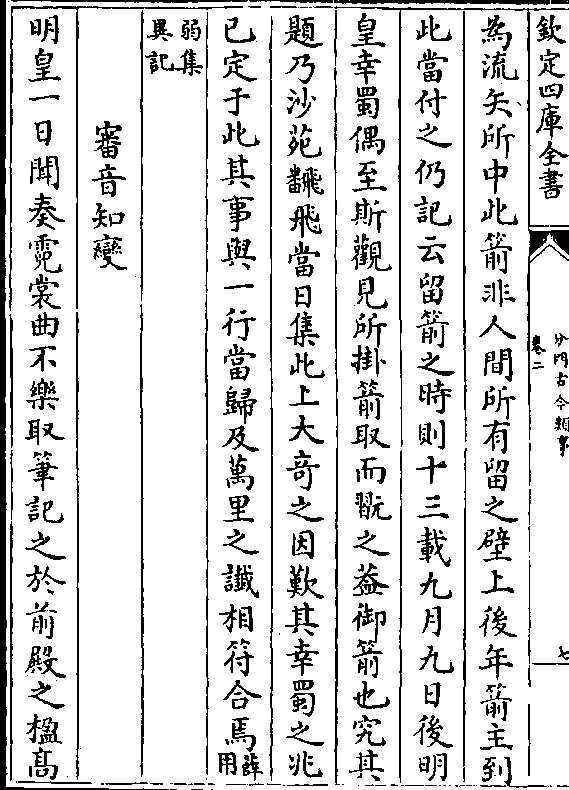 欽定四庫全書
分門古今類事
卷二
七
為流矢所中此箭非人間所有留之壁上後年箭主到
此當付之仍記云留箭之時則十三載九月九日後明
皇幸蜀偶至斯觀見所掛箭取而翫之葢御箭也究其
題乃沙苑翻飛當日集此上大竒之因歎其幸蜀之兆
已定于此其事與一行當歸及萬里之讖相符合焉薛用
弱集
異記
審音知變
明皇一日聞奏霓裳曲不樂取筆記之於前殿之楹髙